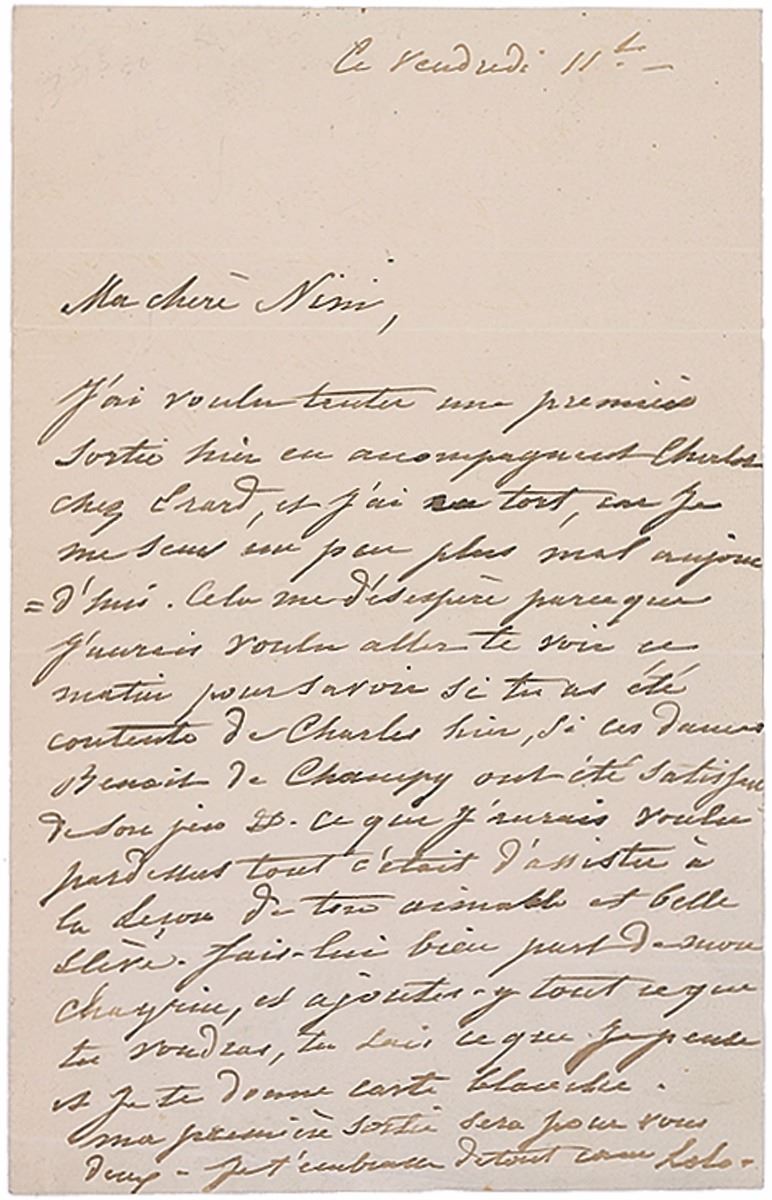 Ce vendredi 11 bre
Ma cherè Nini,
J'ai voulu tenter une premiere
sortie hier en accompagnant Charlot
chez Erard, et j'ai eu tort, car je
me sens un peu plus mal aujour
=d'hui. Cela me désespère parceque
j'aurais voulu aller te voir ce
matin pour savoir si tu as été
contente de Charles hier, si ces dames
Benoit de Champy ont été satisfai
de son jeu &. ce que j'aurais voulu
pardessus tout c'était d'assister à
la leçon de ton aimable et belle
elève. Fais-lui bien part de mon
chagrin, et ajoutes-y tout ce que
tu voudras, tu sais ce que je pense
et je te donne carte blanche.
ma première sortie sera pour vous
deux - je t'embrasse de tout cœur Lolo-